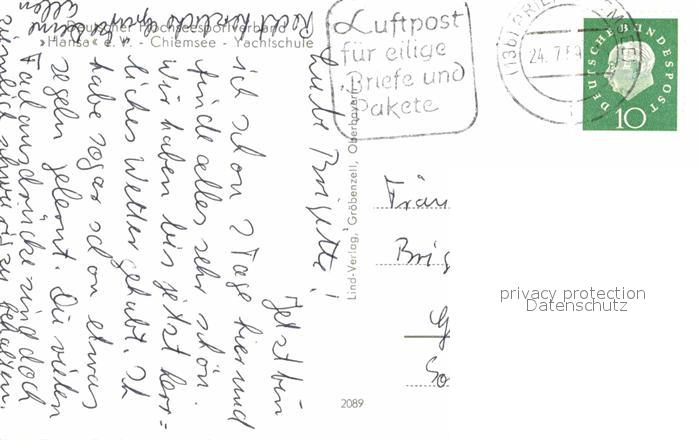 Deutscher Hochseesportverband
»Hansa« e.V. - Chiemsee - Yachtschule
Liebe Brigitte!
Jetzt bin
ich schon 2 Tage hier und
finde alles sehr schön.
Wir haben bis jetzt herr=
liches Wetter gehabt. Ich
habe sogar schon etwas
segeln gelernt. Die vielen
Fachausdrücke sind doch
ziemlich schwierig zu behalten.
Recht herzliche Grüße
Lind-Verlag, Gröbenzell, Oberbayern
2089
Luftpost
für eilige
Briefe und
Pakete
(13b) PRIEN
24.7.59
DEUTSCHE BUNDESPOST
10
Fräu
Brig
G
So
privacy protection
Datenschutz